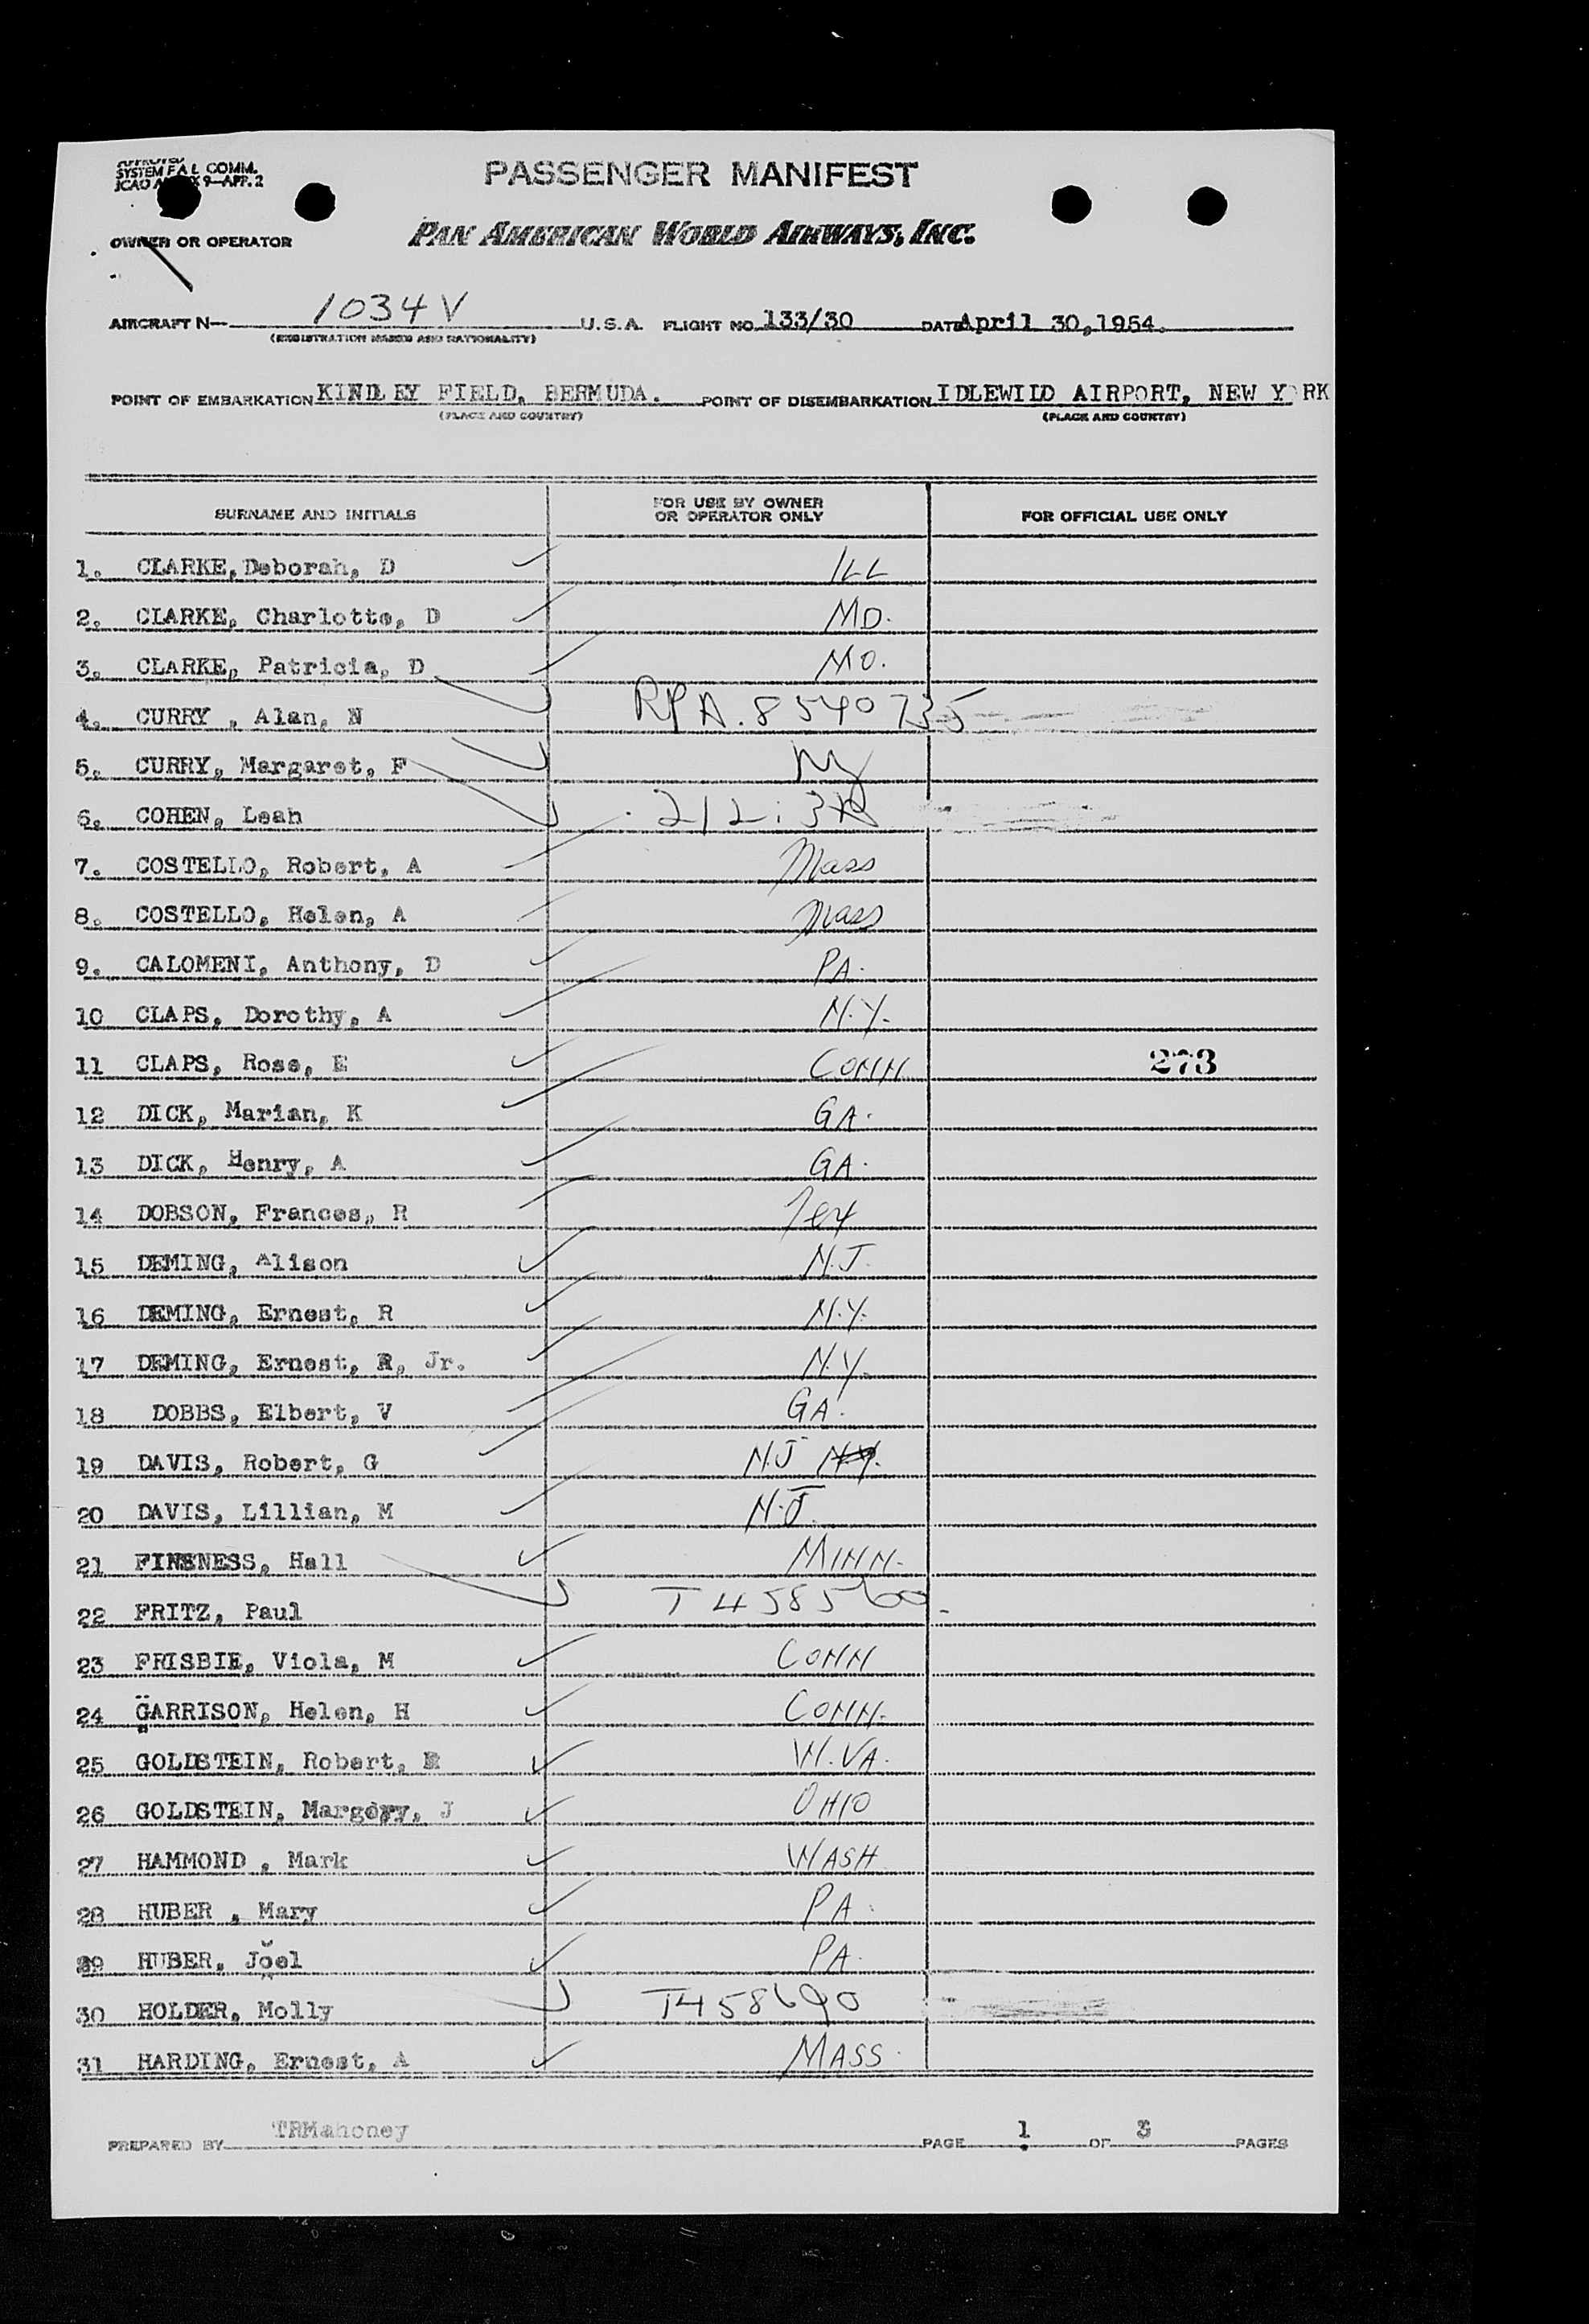 APPROVED
SYSTEM F A L COMM.
ICAO 9—APP. 2
PASSENGER MANIFEST
OWNER OR OPERATOR PAN AMERICAN WORLD AIRWAYS, INC.
AIRCRAFT N— 1034V U.S.A. FLIGHT NO. 133/30 DATE April 30,1954.
(REGISTRATION MARKS AND NATIONALITY)
POINT OF EMBARKATION KINDLEY FIELD, BERMUDA. POINT OF DISEMBARKATION IDLEWILD AIRPORT, NEW Y RK
(PLACE AND COUNTRY) (PLACE AND COUNTRY)
SURNAME AND INITIALS FOR USE BY OWNER OR OPERATOR ONLY FOR OFFICIAL USE ONLY
1. CLARKE,Deborah, D ILL
2. CLARKE, Charlotte, D MD.
3. CLARKE, Patricia, D MO.
4. CURRY , Alan, N RPA. 8540735
5. CURRY, Margaret, F NY
6. COHEN, Leah 212.
7. COSTELLO, Robert, A Mass
8. COSTELLO, Helen, A Mass
9. CALOMENI, Anthony, D PA.
10 CLAPS, Dorothy, A N.Y.
11 CLAPS, Rose, E CONN 273
12 DICK, Marian, K GA.
13 DICK, Henry, A GA.
14 DOBSON, Frances, R Tex
15 DEMING, Alison N.J.
16 DEMING, Ernest, R N.Y.
17 DEMING, Ernest, R, Jr. N.Y.
18 DOBBS, Elbert, V GA.
19 DAVIS, Robert, G N.J N.Y.
20 DAVIS, Lillian, M N.J.
21 FINSNESS, Hall MINN.
22 FRITZ, Paul T458560
23 FRISBIE, Viola, M CONN
24 GARRISON, Helen, H CONN.
25 GOLDSTEIN, Robert, E W.VA.
26 GOLDSTEIN, Margery, J OHIO
27 HAMMOND , Mark WASH
28 HUBER , Mary PA.
29 HUBER, Joel PA.
30 HOLDER, Molly T458690
31 HARDING, Ernest, A MASS.
PREPARED BY TRMahoney PAGE 1 OF 3 PAGES